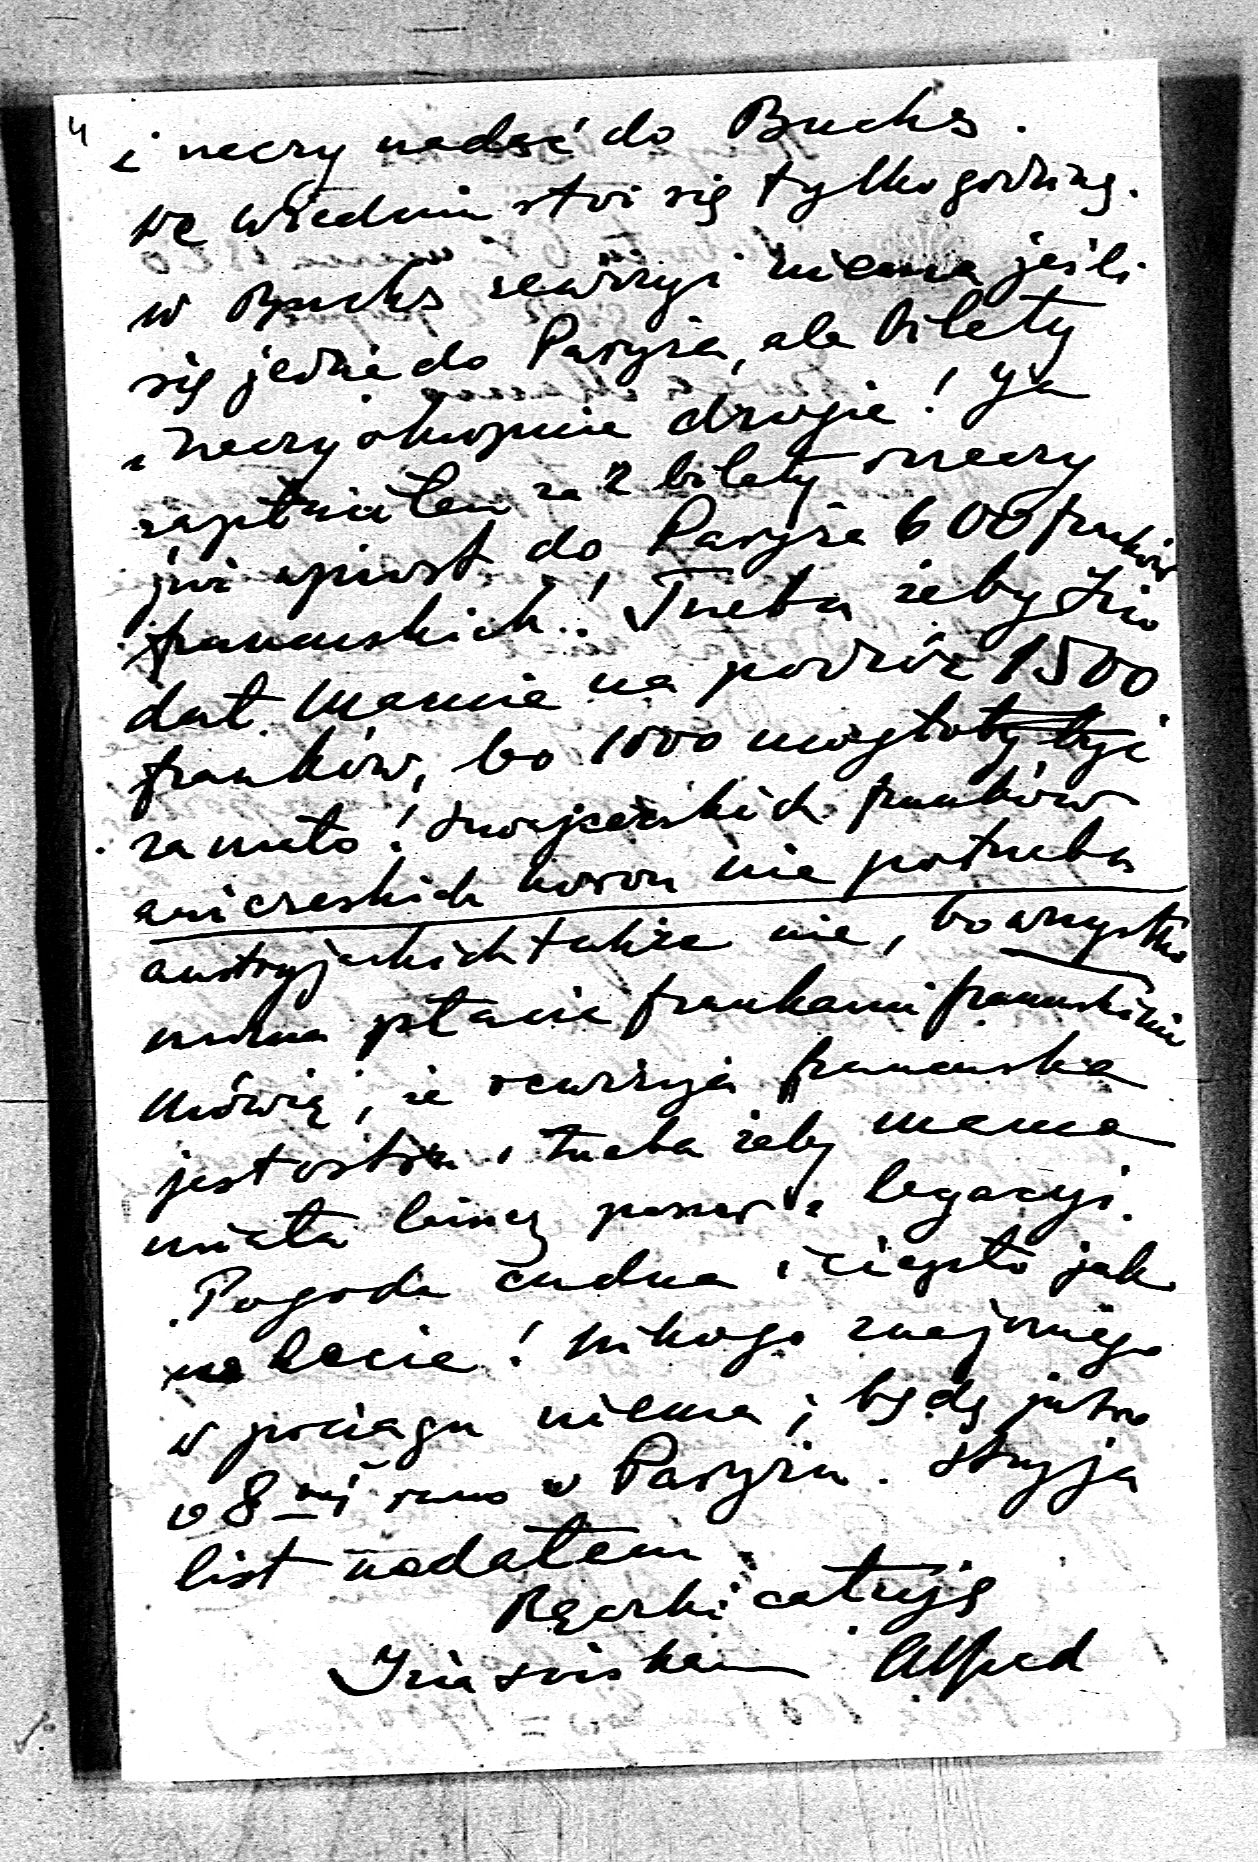 4
i rzeczy nadać do Buchs.
We Wiedniu stoi się tylko godzinę.
w Buchs rewizyi niema jeśli
się jedzie do Paryża, ale bilety
i rzeczy okropnie drogie! Ja
zapłaciłem za 2 bilety i rzeczy
już wprost do Paryża 600 franków
francuskich! Trzeba żeby
dał Mamie na podróż 1500
franków, bo 1000 mogłoby być
za mało! Szwajcarskich franków
ani czeskich koron nie potrzeba
austryjackich także nie, bo wszystko
można płacić frankami francuskimi
Mówią, że rewizya francuska
jest ostra i trzeba żeby Mama
miała laissez passer z legacyi.
Pogoda cudna i ciepło jak
w lecie! Nikogo znajomego
w pociągu niema; będę jutro
o 8mej rano w Paryżu. Stryja
list nadałem.
Rączki całuję
Alfred